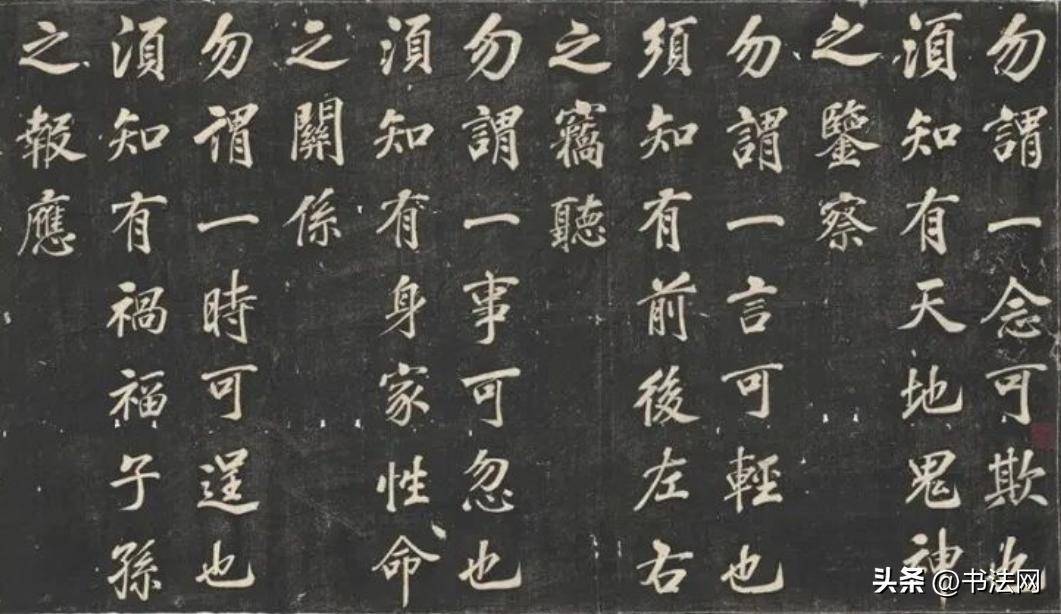 勿謂一念可欺也
須知有天地鬼神
之鑒察
勿謂一言可輕也
須知有前後左右
之竊聽
勿謂一事可忽也
須知有身家性命
之關係
勿謂一時可逞也
須知有禍福子孫
之報應
头条 @书法网